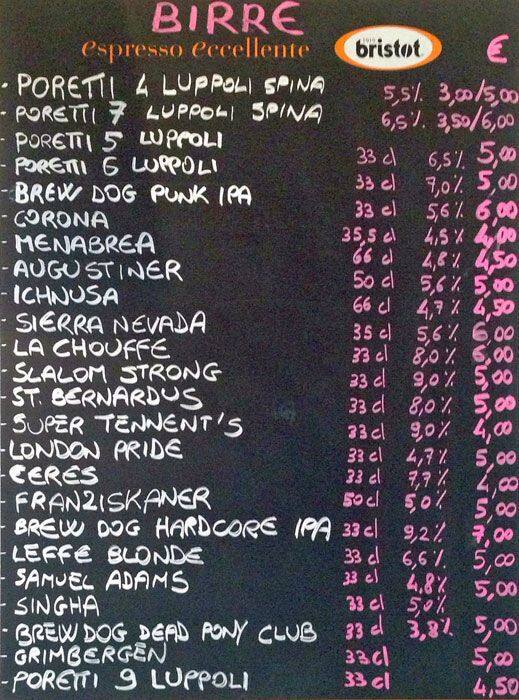 BIRRE
espresso eccellente 1919 bristot €
- PORETTI 4 LUPPOLI SPINA 5,5% 3,00/5,00
- PORETTI 7 LUPPOLI SPINA 6,5% 3,50/6,00
PORETTI 5 LUPPOLI 33 cl 6,5% 5,00
- PORETTI 6 LUPPOLI 33 cl 7,0% 5,00
- BREW DOG PUNK IPA 33 cl 5,6% 6,00
- CORONA 35,5 cl 4,5% 4,00
- MENABREA 66 cl 4,8% 4,50
- AUGUSTINER 50 cl 5,6% 5,00
- ICHNUSA 66 cl 4,7% 4,50
- SIERRA NEVADA 35 cl 5,6% 6,00
- LA CHOUFFE 33 cl 8,0% 6,00
- SLALOM STRONG 33 cl 9,0% 5,00
- ST BERNARDUS 33 cl 8,0% 5,00
- SUPER TENNENT'S 33 cl 9,0% 4,00
- LONDON PRIDE 33 cl 4,7% 5,00
- CERES 33 cl 7,7% 4,00
- FRANZISKANER 50 cl 5,0% 5,00
- BREW DOG HARDCORE IPA 33 cl 9,2% 7,00
- LEFFE BLONDE 33 cl 6,6% 5,00
- SAMUEL ADAMS 33 cl 4,8% 5,00
- SINGHA 33 cl 5,0%
- BREW DOG DEAD PONY CLUB 33 cl 3,8% 5,00
- GRIMBERGEN 33 cl 5,00
- PORETTI 9 LUPPOLI 33 cl 4,50